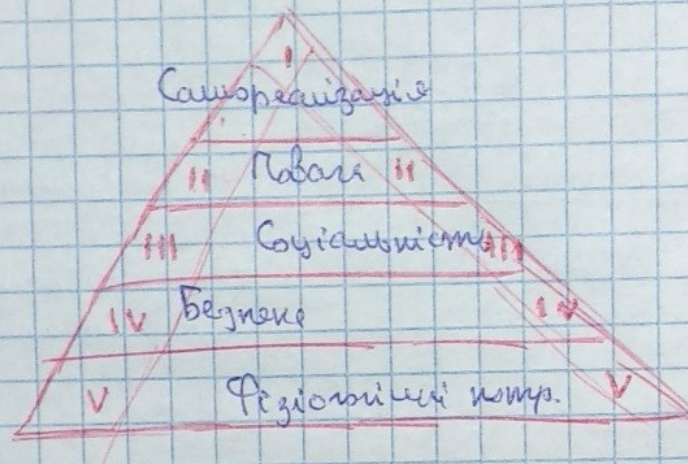 I
Самореалізація
II Повага II
III Соціальність III
IV Безпека IV
V Фізіологічні потр. V